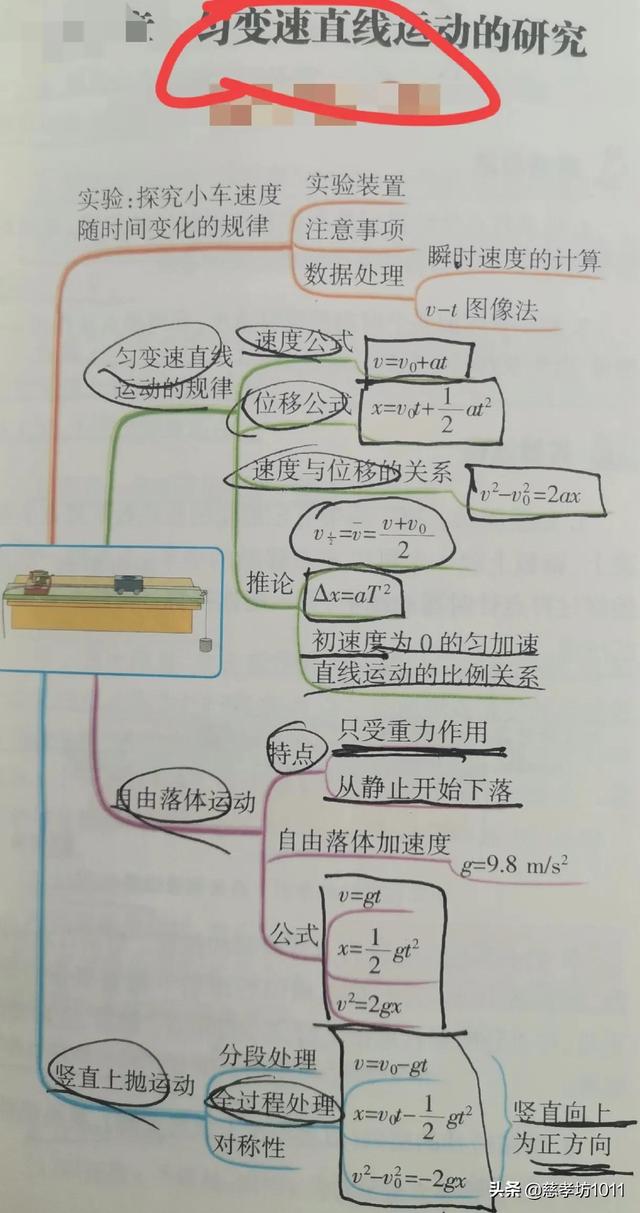 匀变速直线运动的研究
实验:探究小车速度
随时间变化的规律
实验装置
注意事项
数据处理
瞬时速度的计算
v-t 图像法
匀变速直线
运动的规律
速度公式
v=v₀+at
位移公式
x=v₀t+\frac{1}{2}at²
速度与位移的关系
v²-v₀²=2ax
推论
v_{\frac{t}{2}}=\bar{v}=\frac{v+v₀}{2}
Δx=aT²
初速度为 0 的匀加速
直线运动的比例关系
自由落体运动
特点
只受重力作用
从静止开始下落
自由落体加速度
g=9.8 m/s²
公式
v=gt
x=\frac{1}{2}gt²
v²=2gx
竖直上抛运动
分段处理
全过程处理
对称性
v=v₀-gt
x=v₀t-\frac{1}{2}gt²
v²-v₀²=-2gx
竖直向上
为正方向
头条 @慈孝坊1011